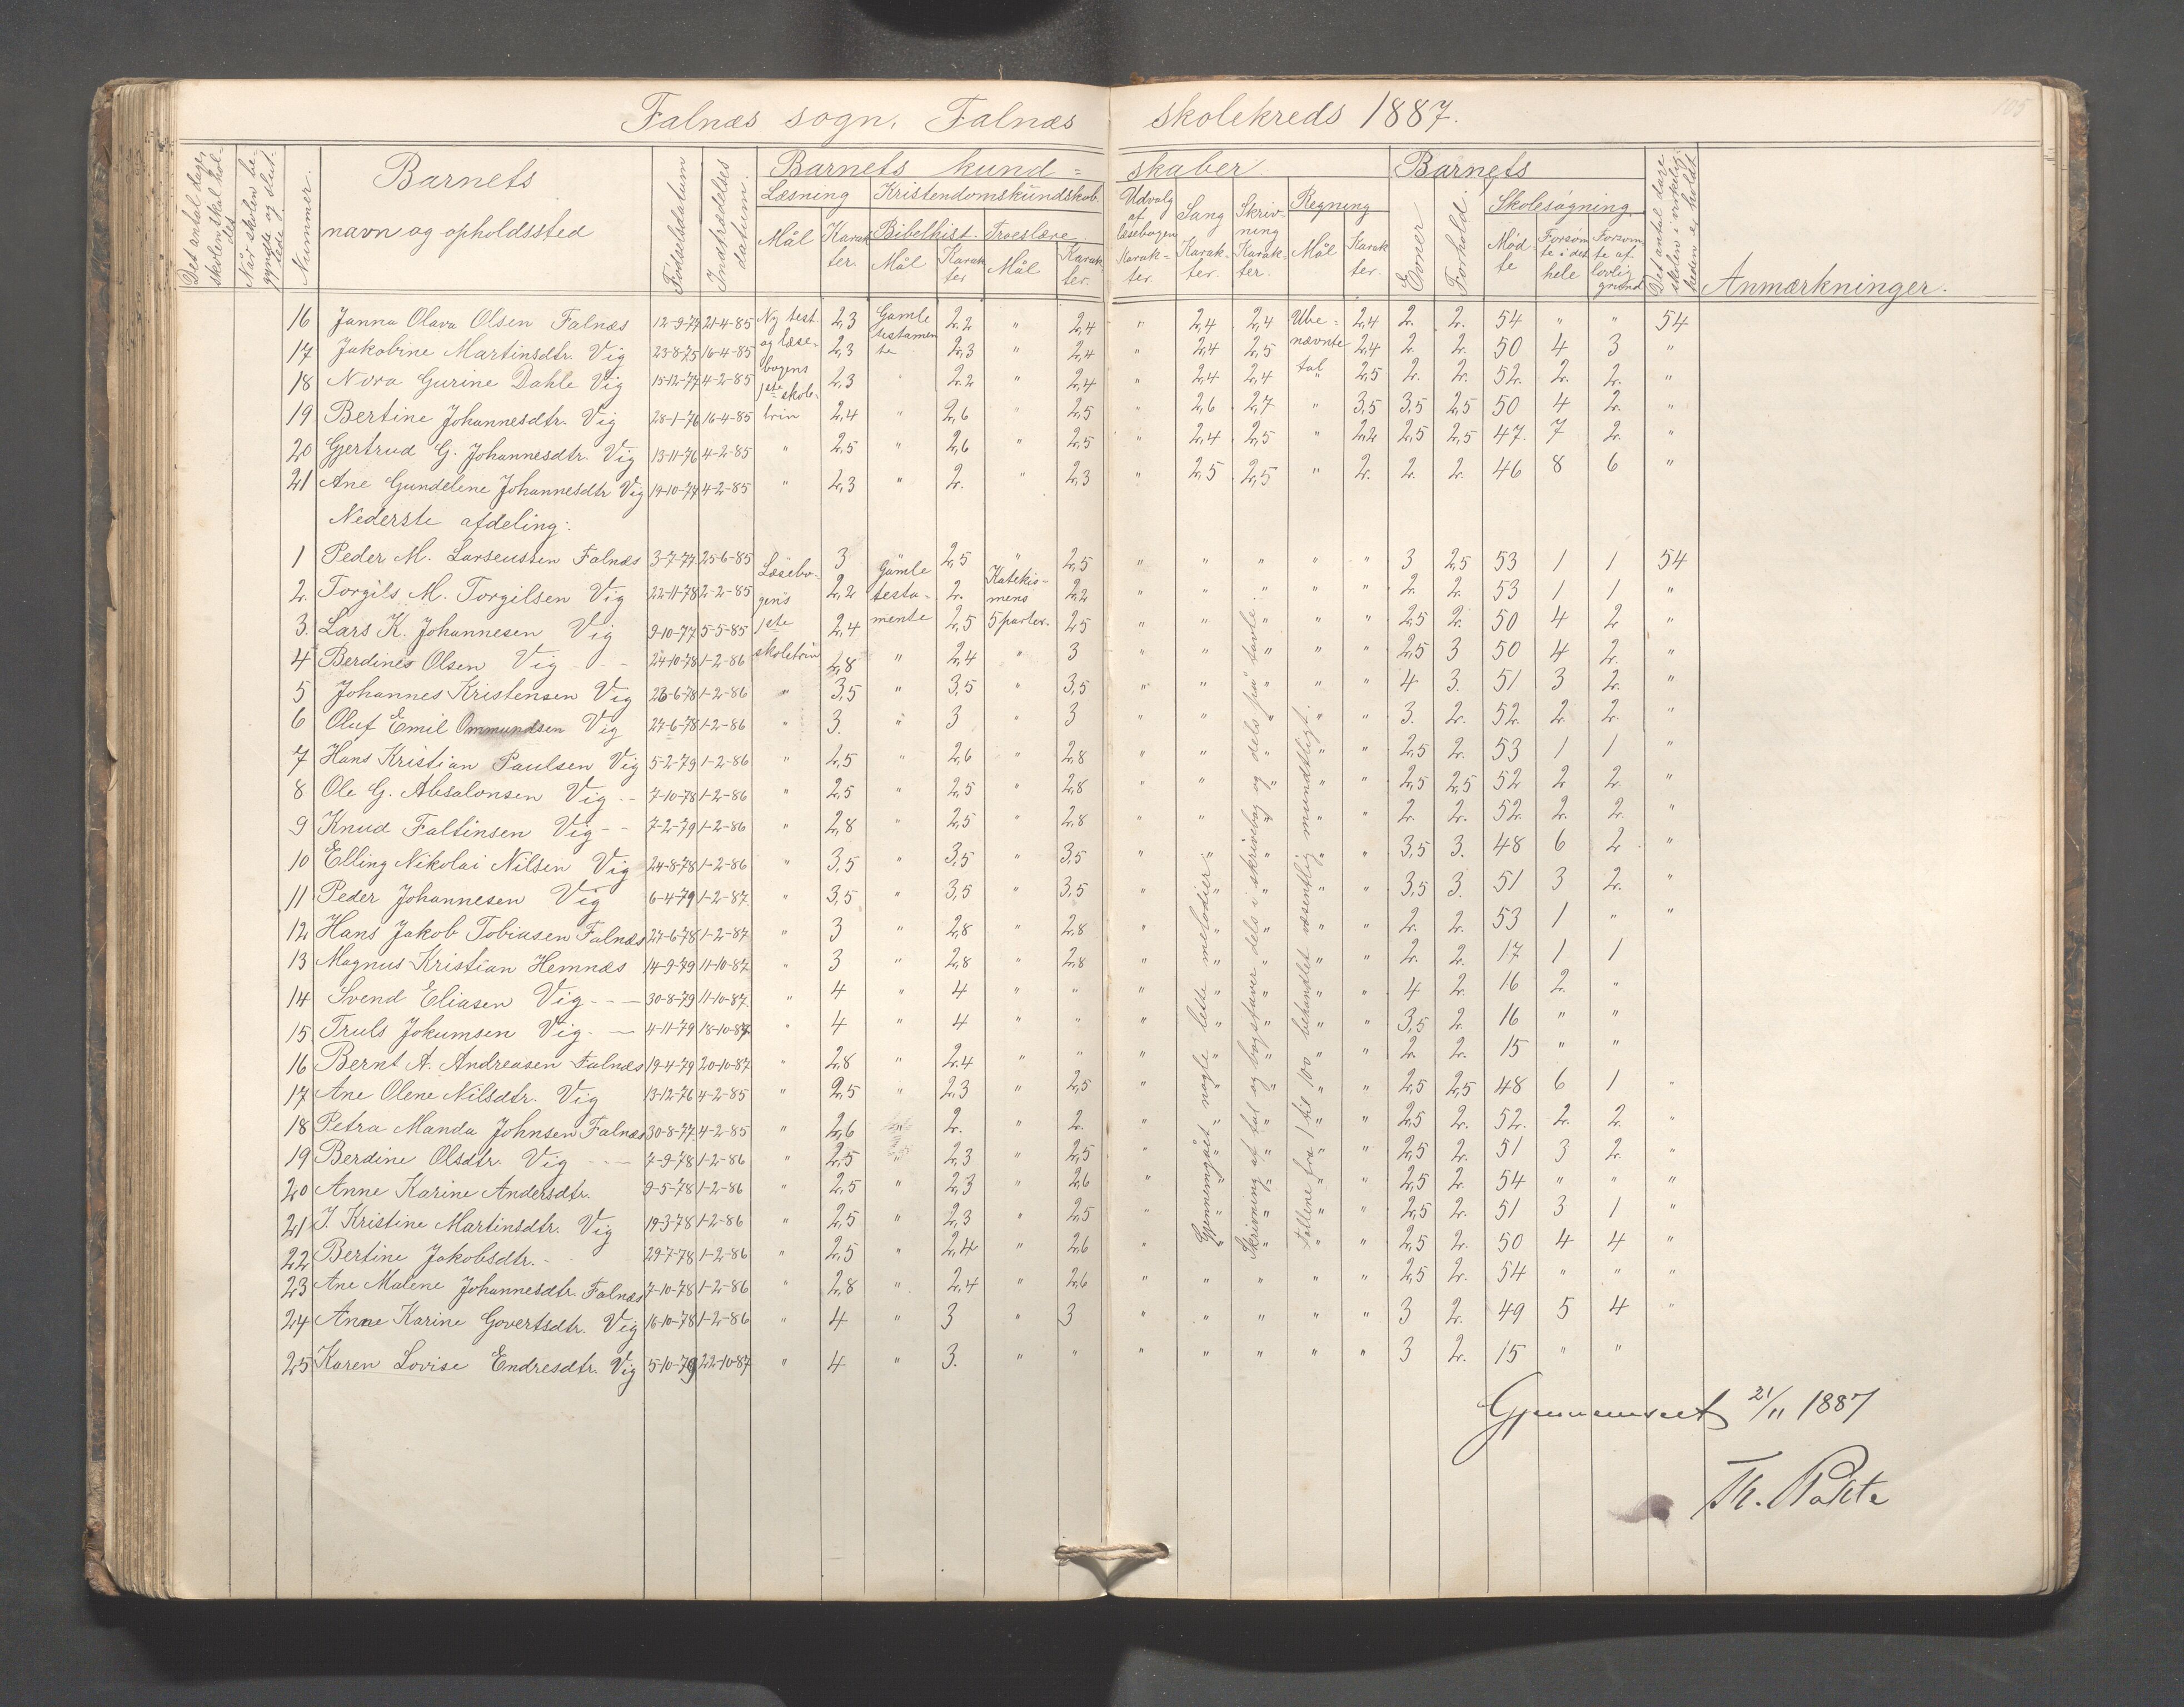 Falnæs sogn, Falnæs skolekreds 1887.
105
Det antal dage, skolen skal holdes
Når skolen begyndte og sluttede
Nummer.
Barnets navn og opholdssted
Fødselsdatum
Indtrædelsesdatum.
Barnets kundskaber.
Læsning Mål Karakter.
Kristendomskundskab. Bibelhist. Mål Karakter Troeslære Mål Karakter.
Udvalg af læsebogen Karakter.
Sang Karakter.
Skrivning Karakter.
Regning Mål Karakter.
Barnets
Evner
Forhold
Skolesøgning. Mødte Forsømte i det hele Forsømte af lovlig grund
Det antal dage skolen i virkeligheden er holdt
Anmærkninger.
16 Janna Olava Olsen Falnæs 12-9-77 21-4-85 Ny test. 2,3 Gamle 2,2 " 2,4 " 2,4 2,4 Ube= 2,4 2. 2. 54 " " 54
17 Jakobine Martinsdtr. Vig 23-8-75 16-4-85 og læse- 2,3 testamente 2,3 " 2,4 " 2,4 2,5 nævnte 2,4 2. 2. 50 4 3 "
18 Nora Gurine Dahle Vig 15-12-77 4-2-85 bogens 1ste skole- 2,3 " 2,2 " 2,4 " 2,4 2,4 tal 2,5 2. 2. 52. 2. 2. "
19 Bertine Johannesdtr. Vig 28-1-76 16-4-85 trin 2,4 " 2,6 " 2,5 " 2,6 2,7 " 3,5 3,5 2,5 50 4 2. "
20 Gjertrud G. Johannesdtr. Vig 13-11-76 4-2-85 " 2,5 " 2,6 " 2,5 " 2,4 2,5 " 2,2 2,5 2,5 47. 7 2. "
21 Ane Gundelene Johannesdtr Vig 19-10-77 4-2-85 " 2,3 " 2. " 2,3 " 2,5 2,5 " 2. 2. 2. 46 8 6 "
Nederste afdeling:
1 Peder M. Larseussen Falnæs 3-7-77 25-6-85 Læsebo- 3 Gamle 2,5 " 2,5 " " " " " 3 2,5 53 1 1 54
2. Torgils M. Torgilsen Vig 22-11-78 2-2-85 gens 2,2 testa- 2. Katekis-mens 2,2 " " " " " 2. 2. 53 1 1 "
3. Lars K. Johannesen Vig 9-10-77 5-5-85 1ste 2,4 mente 2,5 5 parter. 2,5 " " " " " 2,5 2. 50 4 2 "
4 Berdines Olsen Vig - - - 24-10-78 1-2-86 skoletrin 2,8 " 2,4 " 3 " " " " " 2,5 3 50 4 2. "
5 Johannes Kristensen Vig 26-6-78 1-2-86 " 3,5 " 3,5 " 3,5 " " " " " 4 3. 51 3 2. "
6 Oluf Emil Ommundsen Vig 27-6-78 1-2-86 " 3. " 3 " 3 " " " " " 3. 2. 52. 2. 2. "
7 Hans Kristian Paulsen Vig 5-2-79 1-2-86 " 2,5 " 2,6 " 2,8 " " " " " 2,5 2. 53 1 1 "
8 Ole G. Absalonsen Vig - - 7-10-78 1-2-86 " 2,5 " 2,5 " 2,8 " " " " " 2,5 2,5 52 2 2. "
9 Knud Faltinsen Vig - - 7-2-79 1-2-86 " 2,8 " 2,5 " 2,8 " " " " " 2. 2. 52. 2. 2. "
10 Elling Nikolai Nilsen Vig 24-8-78 1-2-86 " 3,5 " 3,5 " 3,5 " " " " " 3,5 3. 48 6 2 "
11 Peder Johannesen Vig 6-4-79 1-2-87. " 3,5 " 3,5 " 3,5 " " " " " 3,5 3. 51 3 2. "
12 Hans Jakob Tobiasen Falnæs 27-6-78 1-2-87 " 3 " 2,8 " 2,8 " " " " " 2. 2. 53 1 " "
13 Magnus Kristian Hemnæs 14-9-79 11-10-87 " 3 " 2,8 " 2,8 " " " " " 2. 2. 17 1 1
14 Svend Eliasen Vig - - - 30-8-79 11-10-87. " 4 " 4 " " " " " " " 4 2. 16 2. "
15 Truls Jokumsen Vig - — 4-11-79 18-10-87 " 4 " 4 " " " " " " " 3,5 2. 16 " "
16 Bernt A. Andreasen Falnæs 19-4-79 20-10-87 " 2,8 " 2,4 " " " " " " " 2. 2. 15 " "
17 Ane Olene Nilsdtr. Vig 13-12-76 4-2-85 " 2,5 " 2,3 " 2,5 " " " " " 2,5 2,5 48 6 1 "
18 Petra Manda Johnsen Falnæs 30-8-77 4-2-85 " 2,6 " 2. " 2. " " " " " 2,5 2. 52. 2. 2. "
19 Berdine Olsdtr. Vig - - - 7-9-78 1-2-86 " 2,5 " 2,3 " 2,5 " " " " " 2,5 2. 51 3 2. "
20 Anne Karine Andersdtr. 9-5-78 1-2-86 " 2,5 " 2,3 " 2,6 " " " " " 2,5 2. 54 " " "
21 J. Kristine Martinsdtr. Vig 19-3-78 1-2-86 " 2,5 " 2,3 " 2,5 " " " " " 2,5 2. 51 3 1 "
22 Bertine Jakobsdtr. - 29-7-78 1-2-86 " 2,5 " 2,4 " 2,6 " " " " " 2,5 2. 50 4 4 "
23 Ane Malene Johannesdtr. Falnæs 7-10-78 1-2-86 " 2,8 " 2,4 " 2,6 " " " " " 2,5 2. 54 " " "
24 Anne Karine Govertsdtr. Vig 16-10-78 1-2-86 " 4 " 3 " 3 " " " " " 3 2. 49 5 4 "
25 Karen Lovise Endresdtr. Vig 5-10-79 22-10-87 " 4 " 3. " " " " " " " 3 2. 15 " "
Gjennemgået nogle lette melodier
Skrivning af tal og bogstaver dels i skrivebog og dels på tavle.
Tallene fra 1 til 100 behandlet væsentlig mundtligt.
Gjennemseet 21/11 1887
Th.